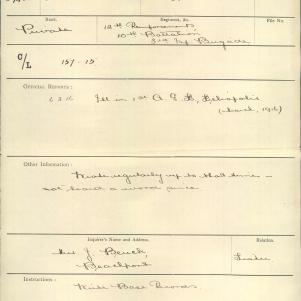 Rank.
Regiment, &c.
File No.
Private
12th Reinforcements
10th Battalion
3rd Inf Brigade
C/L
157-15
GENERAL REPORTS:
6.3.16
Ill in 1st A. G. H. Heliopolis
(March, 1916)
Other Information:
Wrote regularly up to that time -
not heard a word since.
Inquirer's Name and Address.
Relation.
Mrs J
Beachport
Instructions:
Base Records.